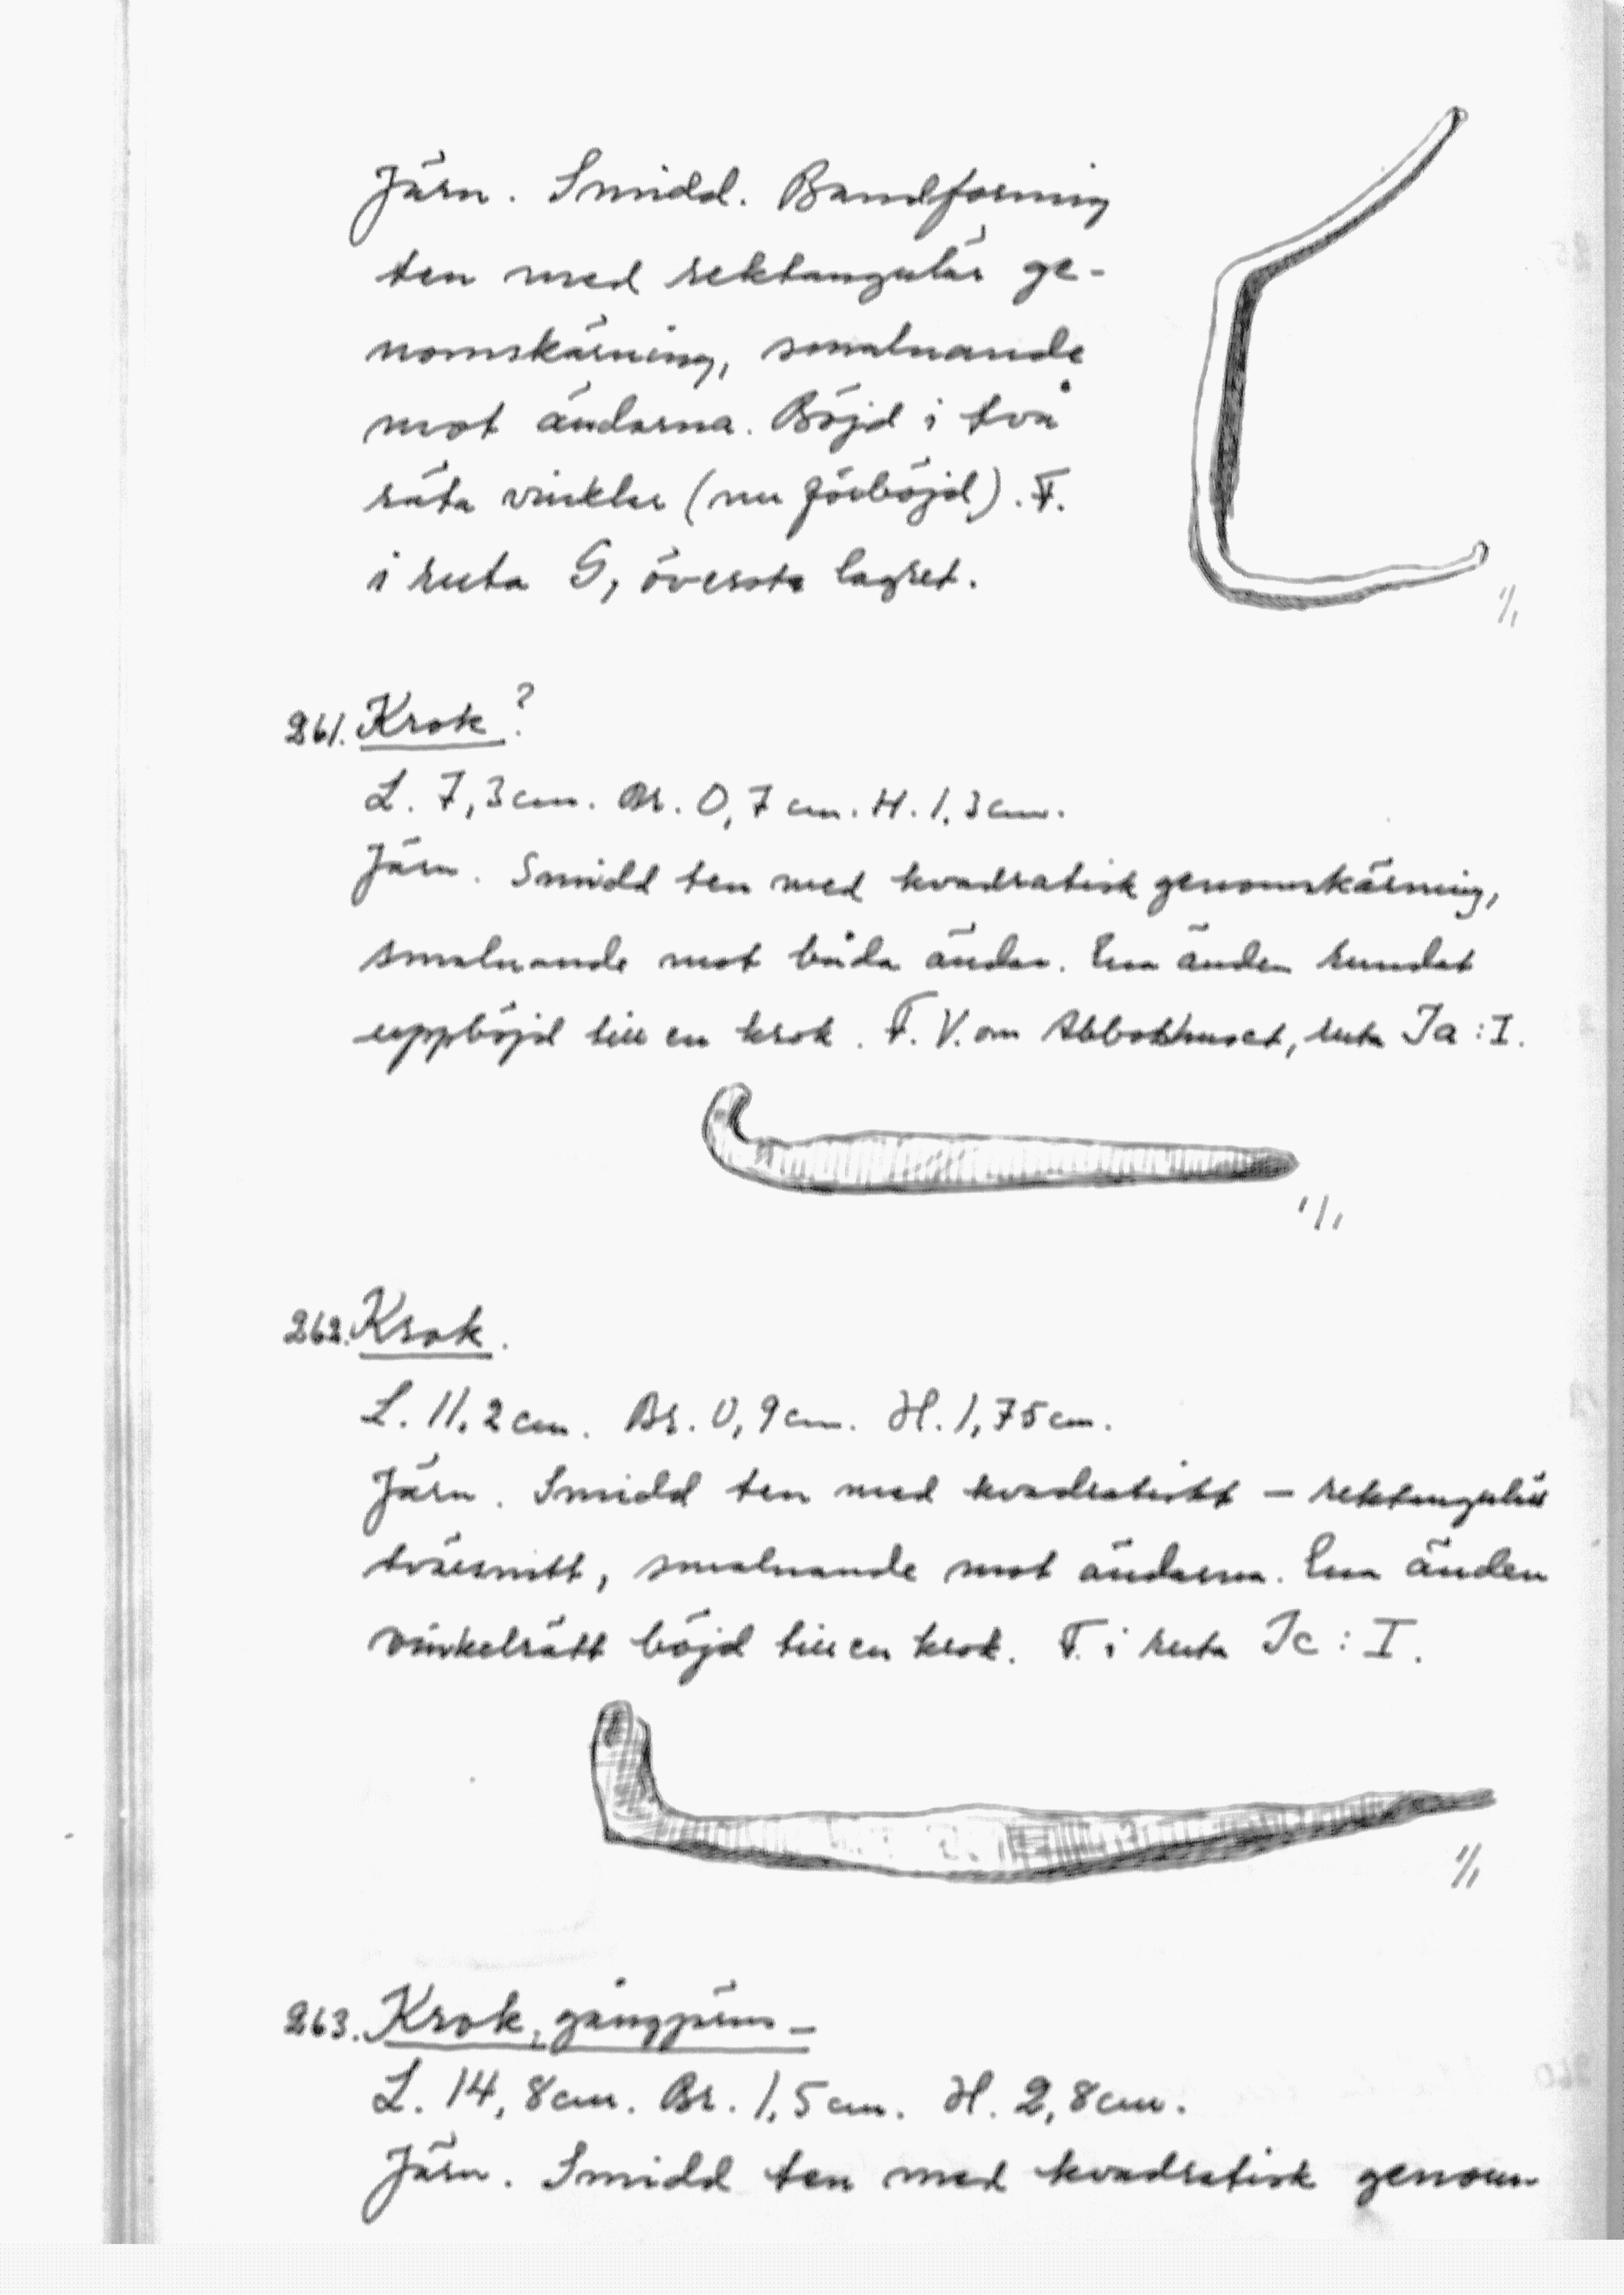 Järn. Smidd. Bandformig
ten med rektangulär ge-
nomskärning, smalnande
mot ändarna. Böjd i två
räta vinklar (nu förböjd). F.
i ruta G, översta lagret.
1/1
261. Krok?
L. 7,3 cm. Br. 0,7 cm. H. 1,3 cm.
Järn. Smidd ten med kvadratisk genomskärning,
smalnande mot båda ändar. Ena änden rundat
uppböjd till en krok. F. V. om Abbothuset, ruta Ja:I.
1/1
262. Krok.
L. 11,2 cm. Br. 0,9 cm. H. 1,75 cm.
Järn. Smidd ten med kvadratiskt – rektangulär
tvärsnitt, smalnande mot ändarna. Ena änden
vinkelrätt böjd till en krok. F. i ruta Jc:I.
1/1
263. Krok, gångjärns-
L. 14,8 cm. Br. 1,5 cm. H. 2,8 cm.
Järn. Smidd ten med kvadratisk genom